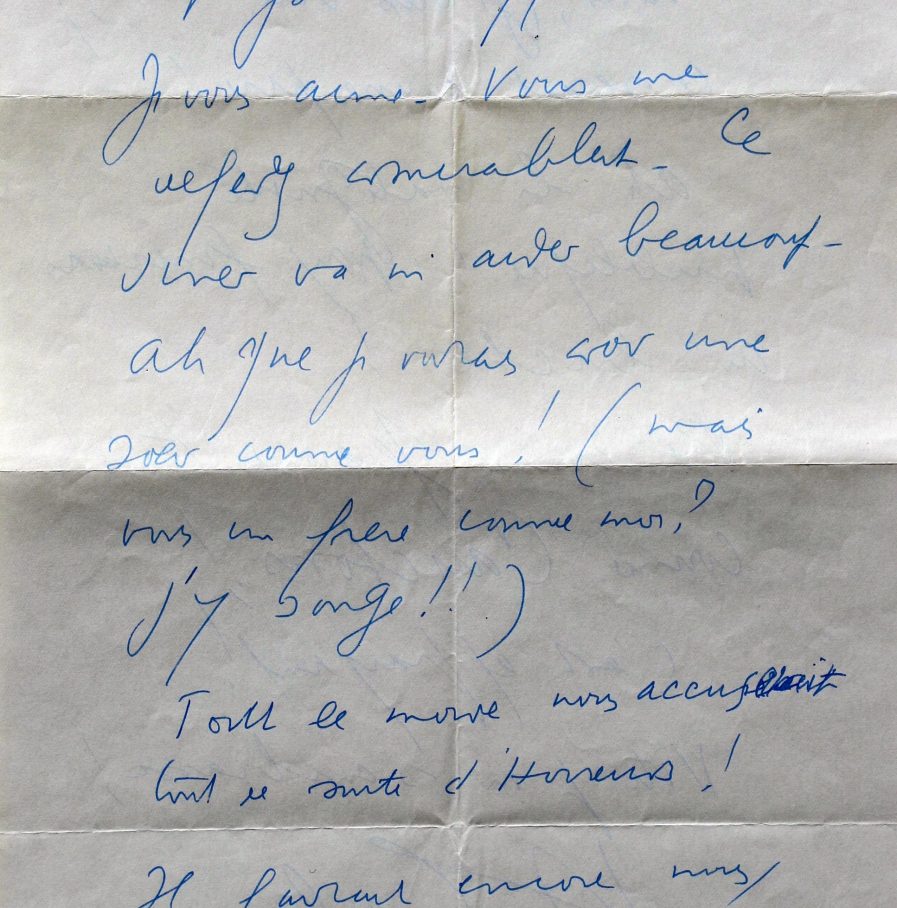 Je vous aime - Vous me
comblent - Ce
dîner va m'aider beaucoup -
Ah que je voudrais avoir une
soeur comme vous ! (mais
vous un frère comme moi ?
j'y songe !! )
Tout le monde nous accuserait
tout de suite d'Horreurs !
Il faudrait encore nous